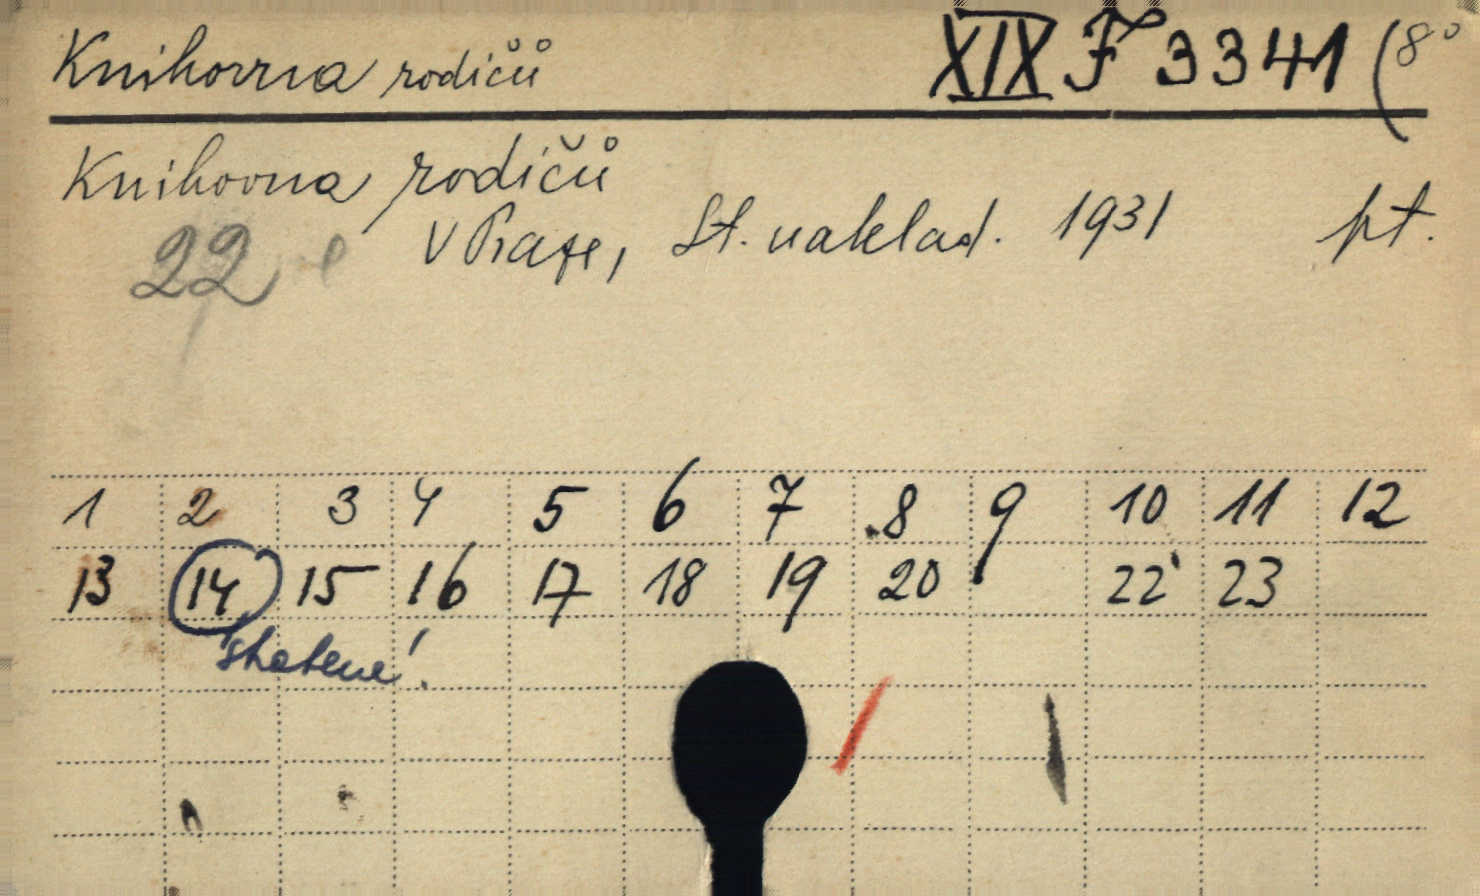 Knihovna rodičů XIX F 3341 (8°
Knihovna rodičů
V Praze, St. naklad. 1931 pt.
22
1 2 3 4 5 6 7 8 9 10 11 12
13 14 15 16 17 18 19 20 22 23